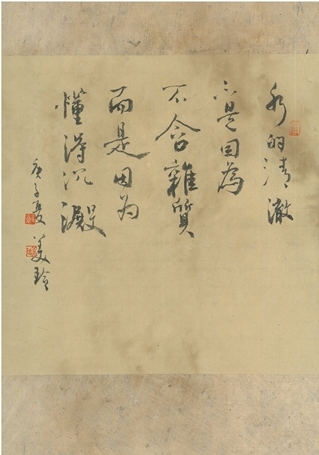 水的清澈
不是因為
不含雜質
而是因为
懂得沉澱
庚子夏 美玲